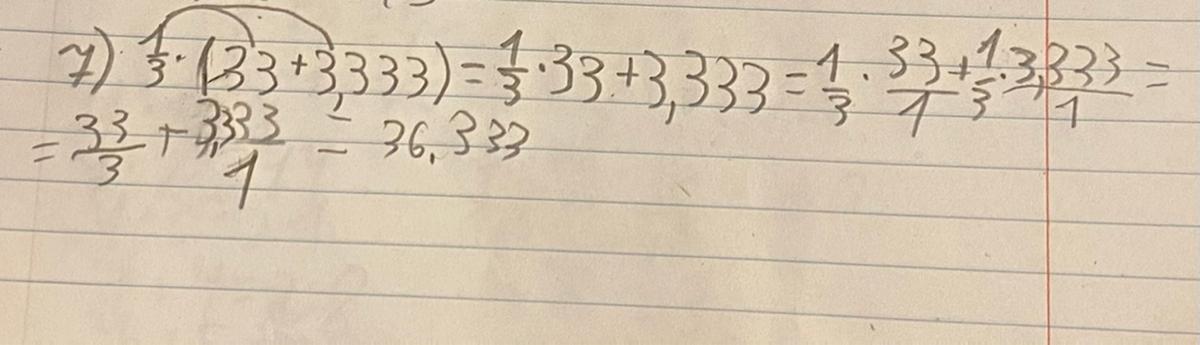 7) 1/3 · (33+3,333) = 1/3 · 33 + 3,333 = 1/3 · 33/1 + 1/3 · 3,333/1 =
= 33/3 + 3,333/1 = 36,333